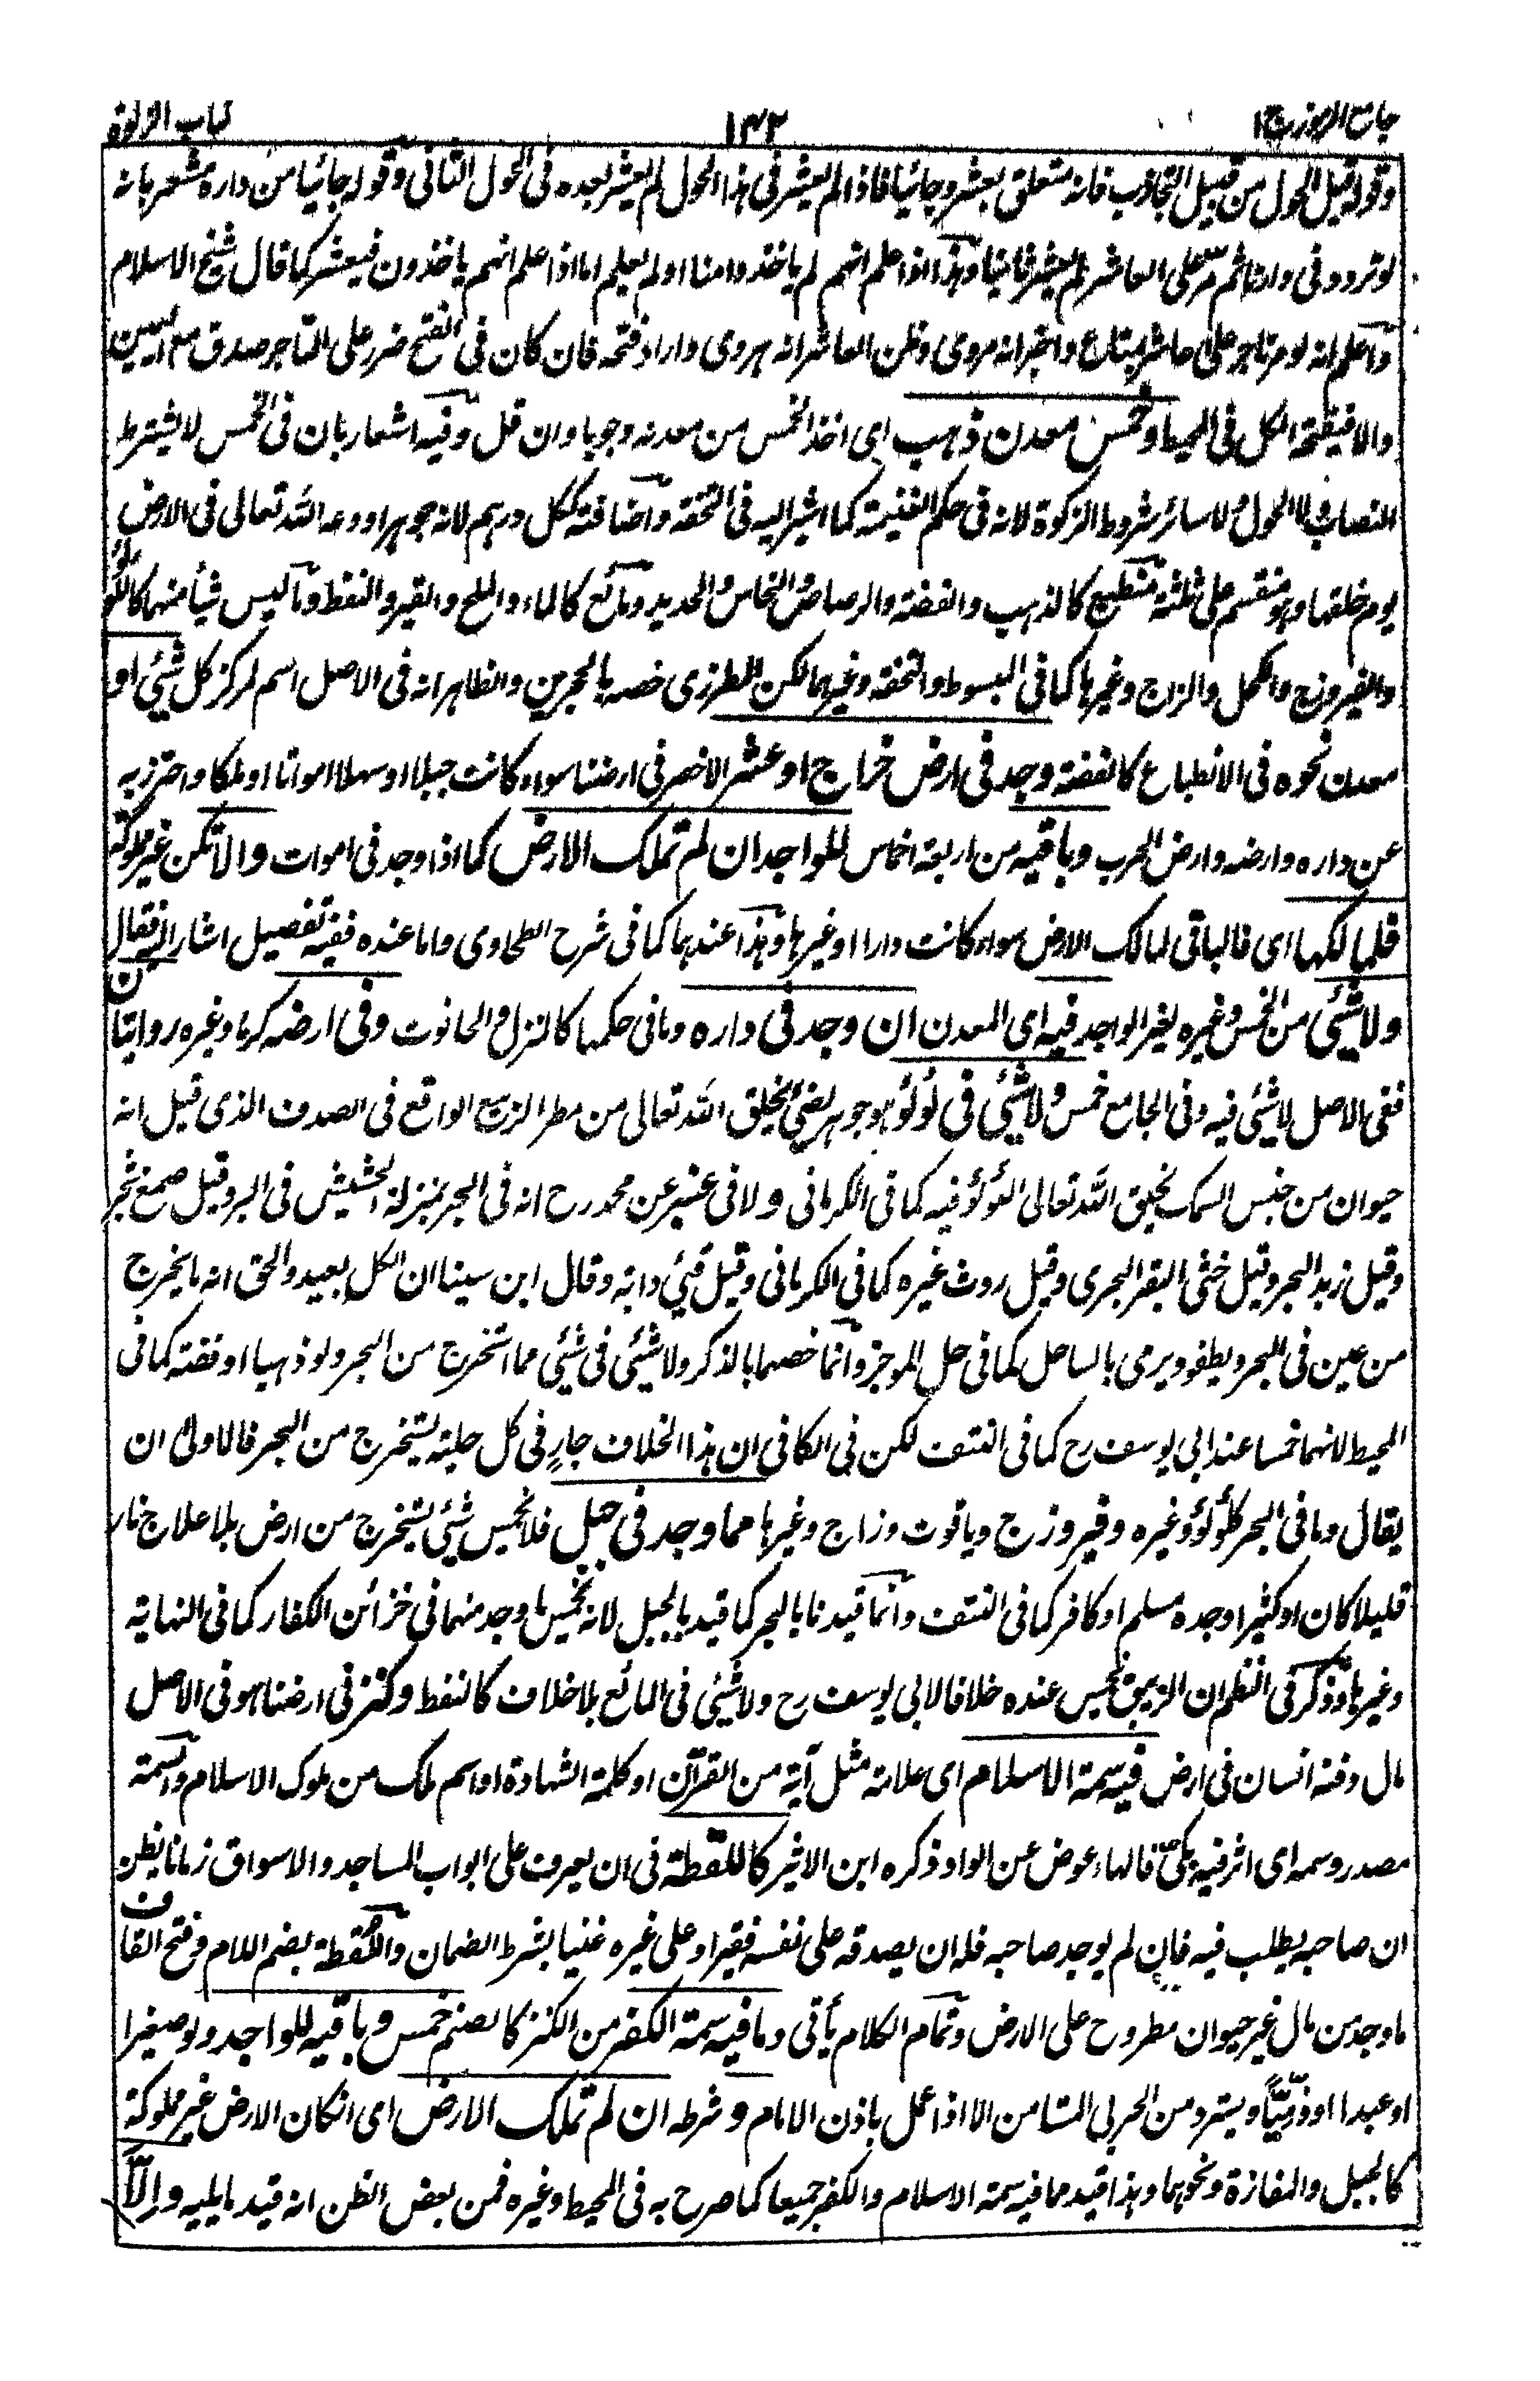 جامع الرموز ج١
١٤٢
كتاب الزكوة
وقوله قبل الحول من قبيل التجاذب فانه متعلق بعشر وجائيا فاذا لم يعشر فى هذا الحول لم يعشر بعده فى الحول الثانى وقوله جائيا من داره مشعر بانه
لو تردد فى دارنا ثم مر على العاشر لم يعشر ثانيا وهذا اذا علم انهم لم ياخذوا منا او لم يعلم اما اذا علم انهم ياخذون فيعشر كما قال شيخ الاسلام
واعلم انه لو مر تاجر على عاشر بمتاع واخبر انه مروى وظن العاشر انه هروى واراد فتحه فان كان فى الفتح ضرر على التاجر صدق مع اليمين
والا فيفتحه الكل فى المحيط وخمس معدن ذهب اى اخذ الخمس من معدنه وجوبا وان قل وفيه اشعار بان فى الخمس لا يشترط
النصاب ولا الحول ولا سائر شروط الزكوة لانه فى حكم الغنيمة كما اشير اليه فى التحفة واضافته ككل درهم لانه جوهر اودعه الله تعالى فى الارض
يوم خلقها وهو منقسم على ثلثة منطبع كالذهب والفضة والرصاص والنحاس والحديد ومائع كالماء والملح والقير والنفط وما ليس شيأ منهما كاللؤلؤ
والفيروزج والكحل والزاج وغيرها كما فى المبسوط والتحفة وغيرهما لكن المطرزى خصه بالحجرين والظاهر انه فى الاصل اسم لمركز كل شئ او
معدن نحوه فى الانطباع كالفضة وجد فى ارض خراج او عشر الاخصر فى ارضنا سواء كانت جبلا او سهلا امواتا او ملكا واحترز به
عن داره وارضه وارض الحرب وباقيه من اربعة اخماس للواجد ان لم تملك الارض كما اذا وجد فى اموات والا تكن غير مملوكة
فلمالكها اى فالباقى لمالك الارض سواء كانت دارا او غيرها وهذا عندهما كما فى شرح الطحاوى واما عنده ففيه تفصيل اشار اليه فقال
ولا شئ من الخمس وغيره لغير الواجد فيه اى المعدن ان وجد فى داره وما فى حكمها كالمنزل والحانوت وفى ارضه كرما وغيره روايتان
ففى الاصل لا شئ فيه وفى الجامع خمس ولا شئ فى لؤلؤ هو جوهر يضئ يخلق الله تعالى من مطر الربيع الواقع فى الصدف الذى قيل انه
حيوان من جنس السمك يخلق الله تعالى اللؤلؤ فيه كما فى الكرمانى ولا فى عنبر عن محمد رح انه فى البحر بمنزلة الحشيش فى البر وقيل صمغ شجر
وقيل زبد البحر وقيل خثى البقر البحرى وقيل روث غيره كما فى الكرمانى وقيل قيئ دابة وقال ابن سينا ان الكل بعيد والحق انه ما يخرج
من عين فى البحر ويطفو ويرمى بالساحل كما فى حل الموجز وانما خصهما بالذكر ولا شئ فى شئ مما استخرج من البحر ولو ذهبا او فضة كما فى
المحيط لانهما خمسا عند ابى يوسف رح كما فى النتف لكن فى الكافى ان هذا الخلاف جارٍ فى كل حلية يستخرج من البحر فالاولى ان
يقال وما فى البحر كلؤلؤ وغيره وفيروزج وياقوت وزاج وغيرها مما وجد فى جبل فلا يخمس شئ يستخرج من ارض بلا علاج نار
قليلا كان او كثيرا وجده مسلم او كافر كما فى النتف وانما قيدنا بالبحر كما قيد بالجبل لانه يخمس ما وجد منهما فى خزائن الكفار كما فى النهاية
وغيرها وذكر فى النظم ان الزيبق يخمس عنده خلافا لابى يوسف رح ولا شئ فى المائع بلا خلاف كالنفط وكنز فى ارضنا هو فى الاصل
مال دفنه انسان فى ارض فيه سمة الاسلام اى علامة مثل آية من القرآن او كلمة الشهادة او اسم ملك من ملوك الاسلام والسمة
مصدر وسمه اى اثر فيه بكىّ فالهاء عوض عن الواو ذكره ابن الاثير كاللقطة فى ان يعرف على ابواب المساجد والاسواق زمانا يظن
ان صاحبه يطلب فيه فان لم يوجد صاحبه فله ان يصدقه على نفسه فقيرا وعلى غيره غنيا بشرط الضمان واللُقطة بضم اللام وفتح القاف
ما وجد من مال غير حيوان مطروح على الارض وتمام الكلام يأتى وما فيه سمة الكفر من الكنز كالصنم خمس وباقيه للواجد ولو صغيرا
او عبدا او ذميّا ويسترد من الحربى المستامن الا اذا عمل باذن الامام وشرطه ان لم تملك الارض اى انكان الارض غير مملوكة
كالجبل والمفازة ونحوهما وهذا قيد مما فيه سمة الاسلام والكفر جميعا كما صرح به فى المحيط وغيره فمن بعض الظن انه قيد ما يليه والّا